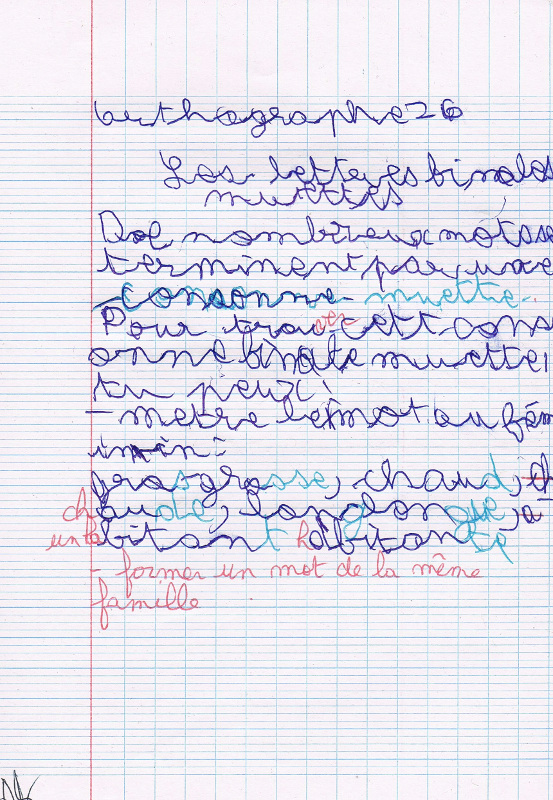 orthographe 26
Les lettres binales
muettes
De nombreux mots se
terminent par une
consonne muette.
Pour trouver cett cons
onne binale muette,
tu peux:
- metre le mot au fém
inin:
gros grosse, chaud, ch
chaude, long longue, a
un habitant habitante
- former un mot de la même
famille